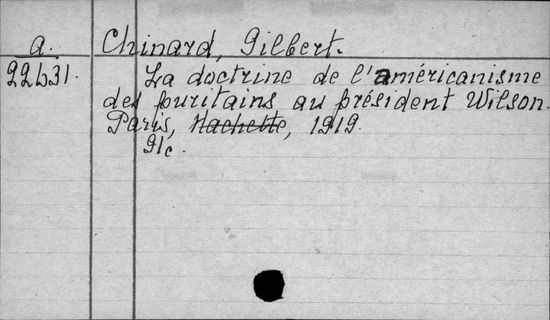 a. Chinard, Gilbert.
22431. La doctrine de l'américanisme
des puritains au président Wilson.
Paris, Hachette, 1919.
91c.